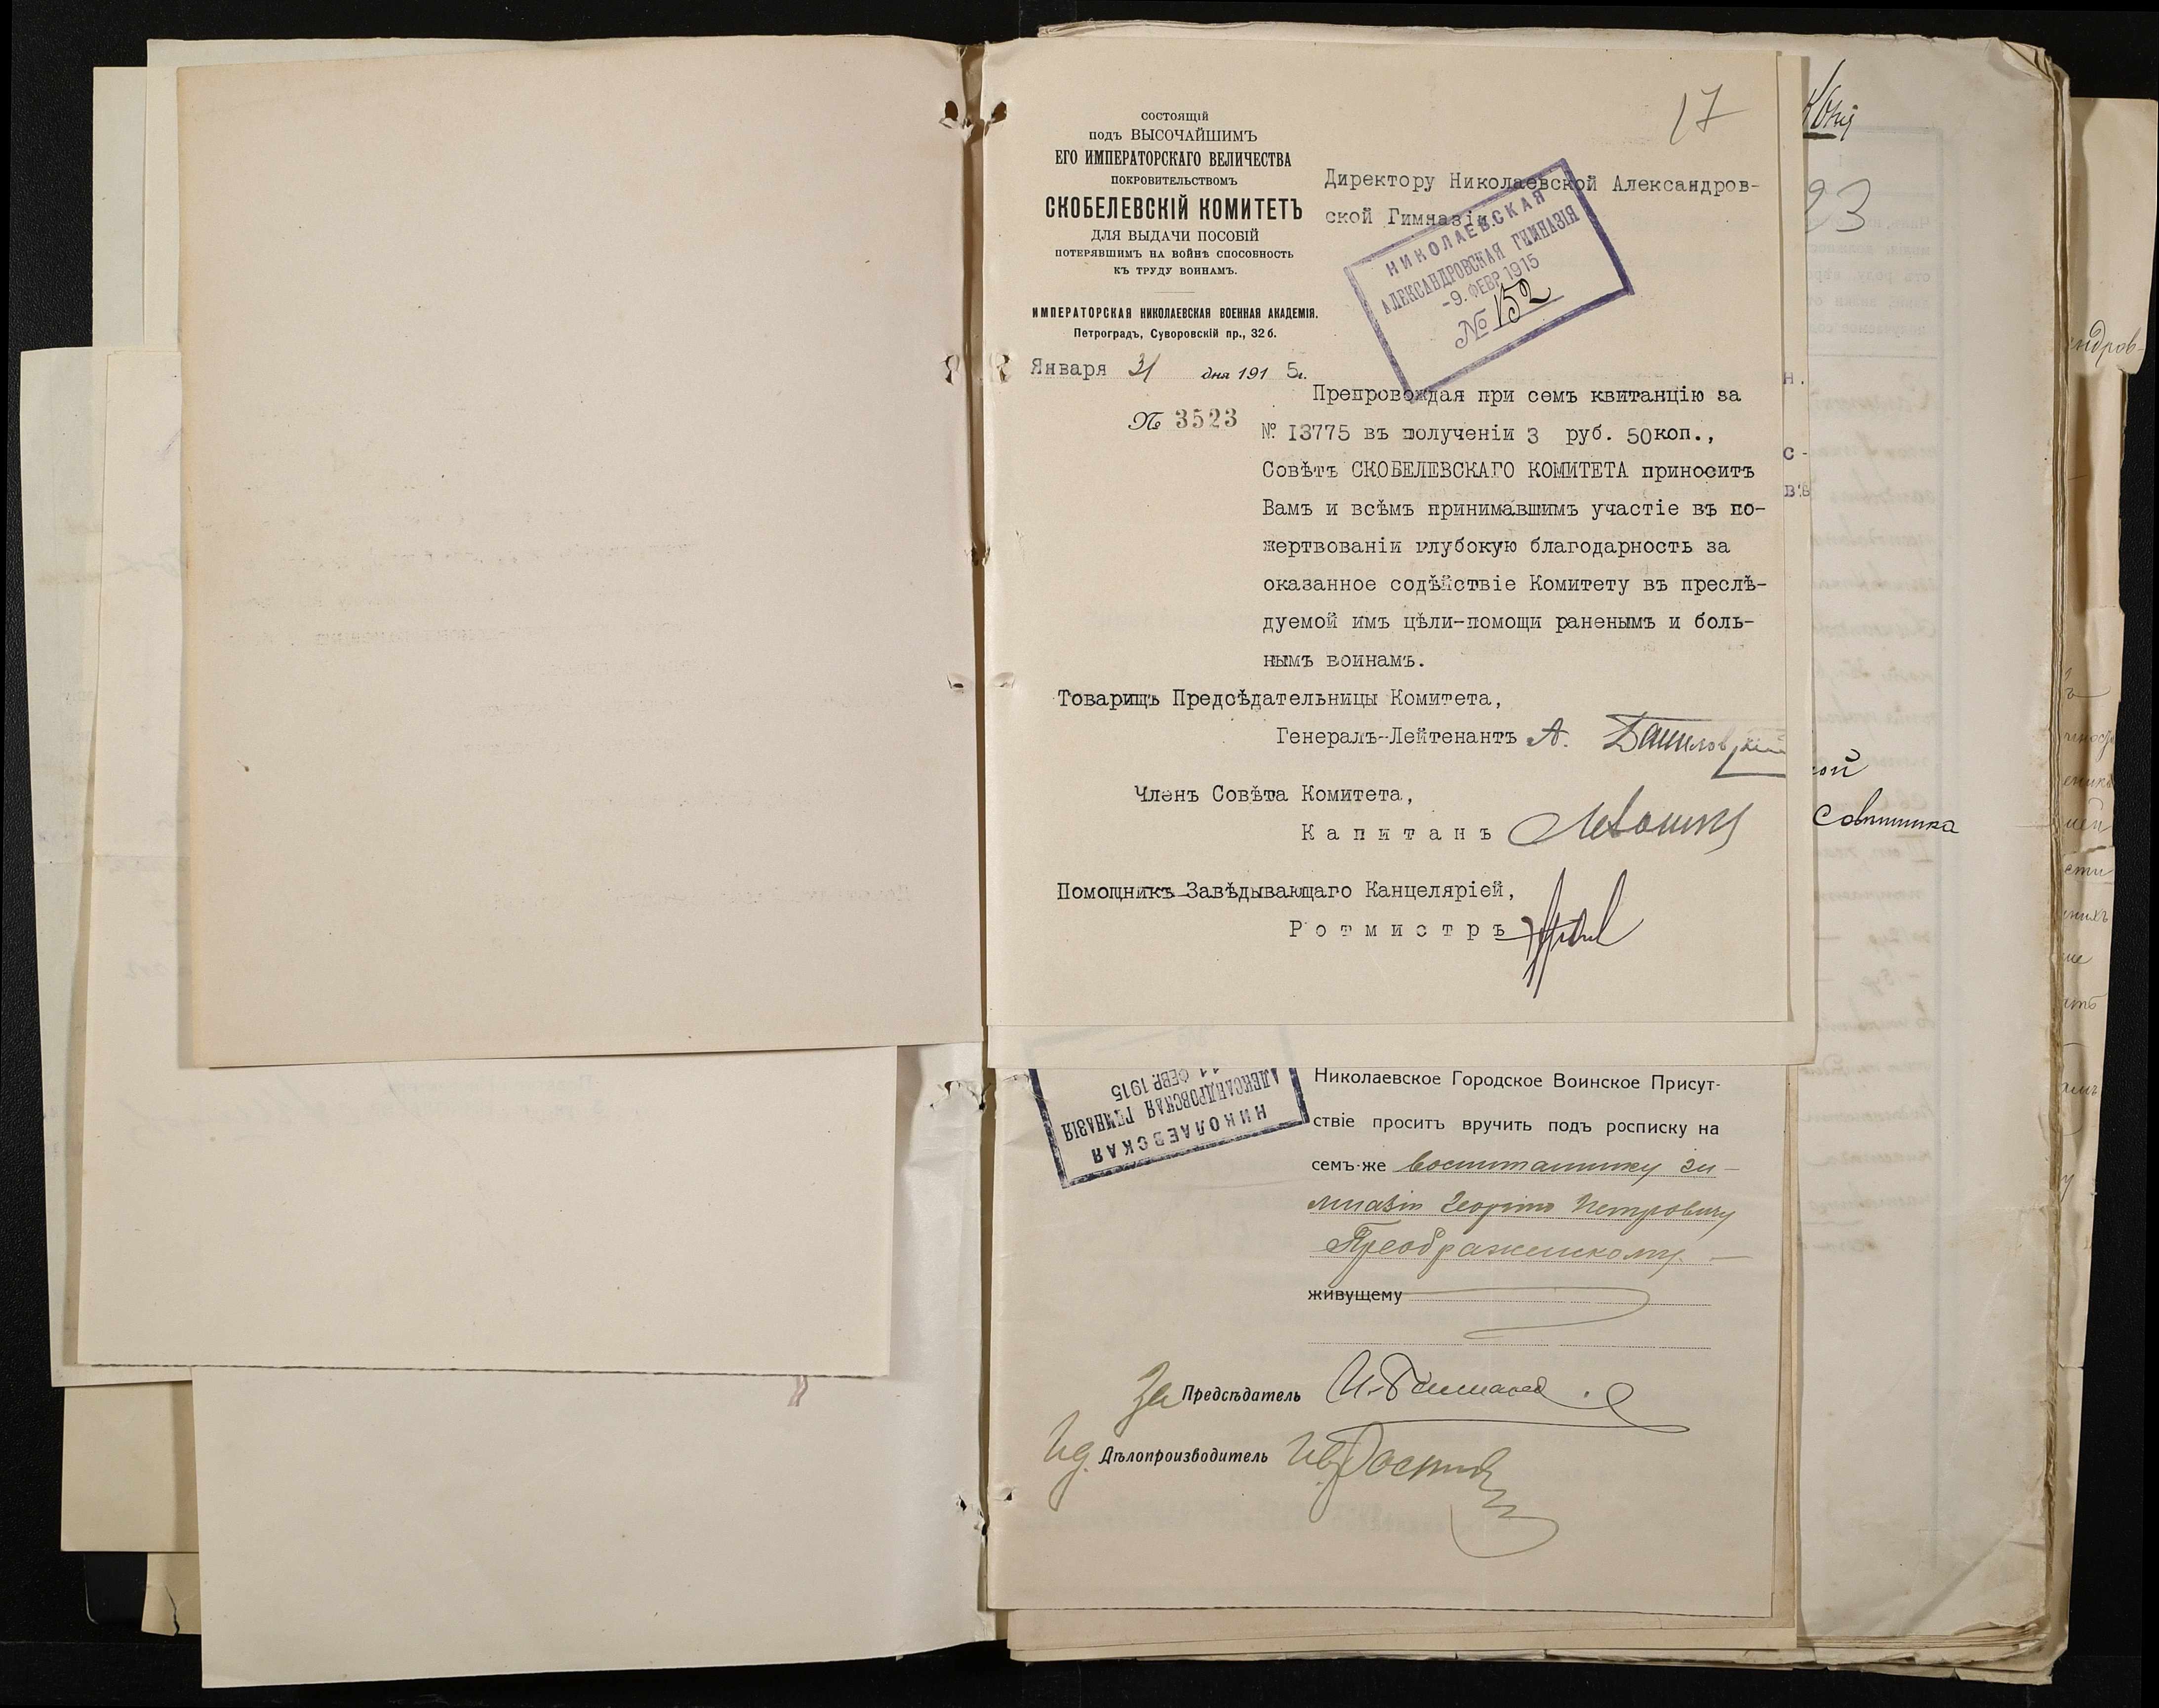 17
состоящій
подъ ВЫСОЧАЙШИМЪ
ЕГО ИМПЕРАТОРСКАГО ВЕЛИЧЕСТВА
покровительствомъ
СКОБЕЛЕВСКІЙ КОМИТЕТЪ
ДЛЯ ВЫДАЧИ ПОСОБІЙ
ПОТЕРЯВШИМЪ НА ВОЙНѢ СПОСОБНОСТЬ
КЪ ТРУДУ ВОИНАМЪ.
ИМПЕРАТОРСКАЯ НИКОЛАЕВСКАЯ ВОЕННАЯ АКАДЕМІЯ.
Петроградъ, Суворовскій пр., 32 б.
Января 31 дня 1915г.
№ 3523
Директору Николаевской Александров-
ской Гимназіи
НИКОЛАЕВСКАЯ
АЛЕКСАНДРОВСКАЯ ГИМНАЗІЯ
-9. ФЕВР. 1915
№ 152
Препровождая при семъ квитанцію за
№ 13775 въ полученіи 3 руб. 50коп.,
Совѣтъ СКОБЕЛЕВСКАГО КОМИТЕТА приноситъ
Вамъ и всѣмъ принимавшимъ участіе въ по-
жертвованіи глубокую благодарность за
оказанное содѣйствіе Комитету въ преслѣ-
дуемой имъ цѣли-помощи раненымъ и боль-
нымъ воинамъ.
Товарищъ Предсѣдательницы Комитета,
Генералъ-Лейтенантъ А.
Членъ Совѣта Комитета,
Капитанъ
Помощникъ Завѣдывающаго Канцеляріей,
Ротмистръ
НИКОЛАЕВСКАЯ
АЛЕКСАНДРОВСКАЯ ГИМНАЗІЯ
11 ФЕВР. 1915
Николаевское Городское Воинское Присут-
ствіе проситъ вручить подъ росписку на
семъ-же воспитаннику ги-
мназіи Георгію Петровичу
Преображенскому
живущему
За Предсѣдатель
Ид. Дѣлопроизводитель
23
н.
с-
въ